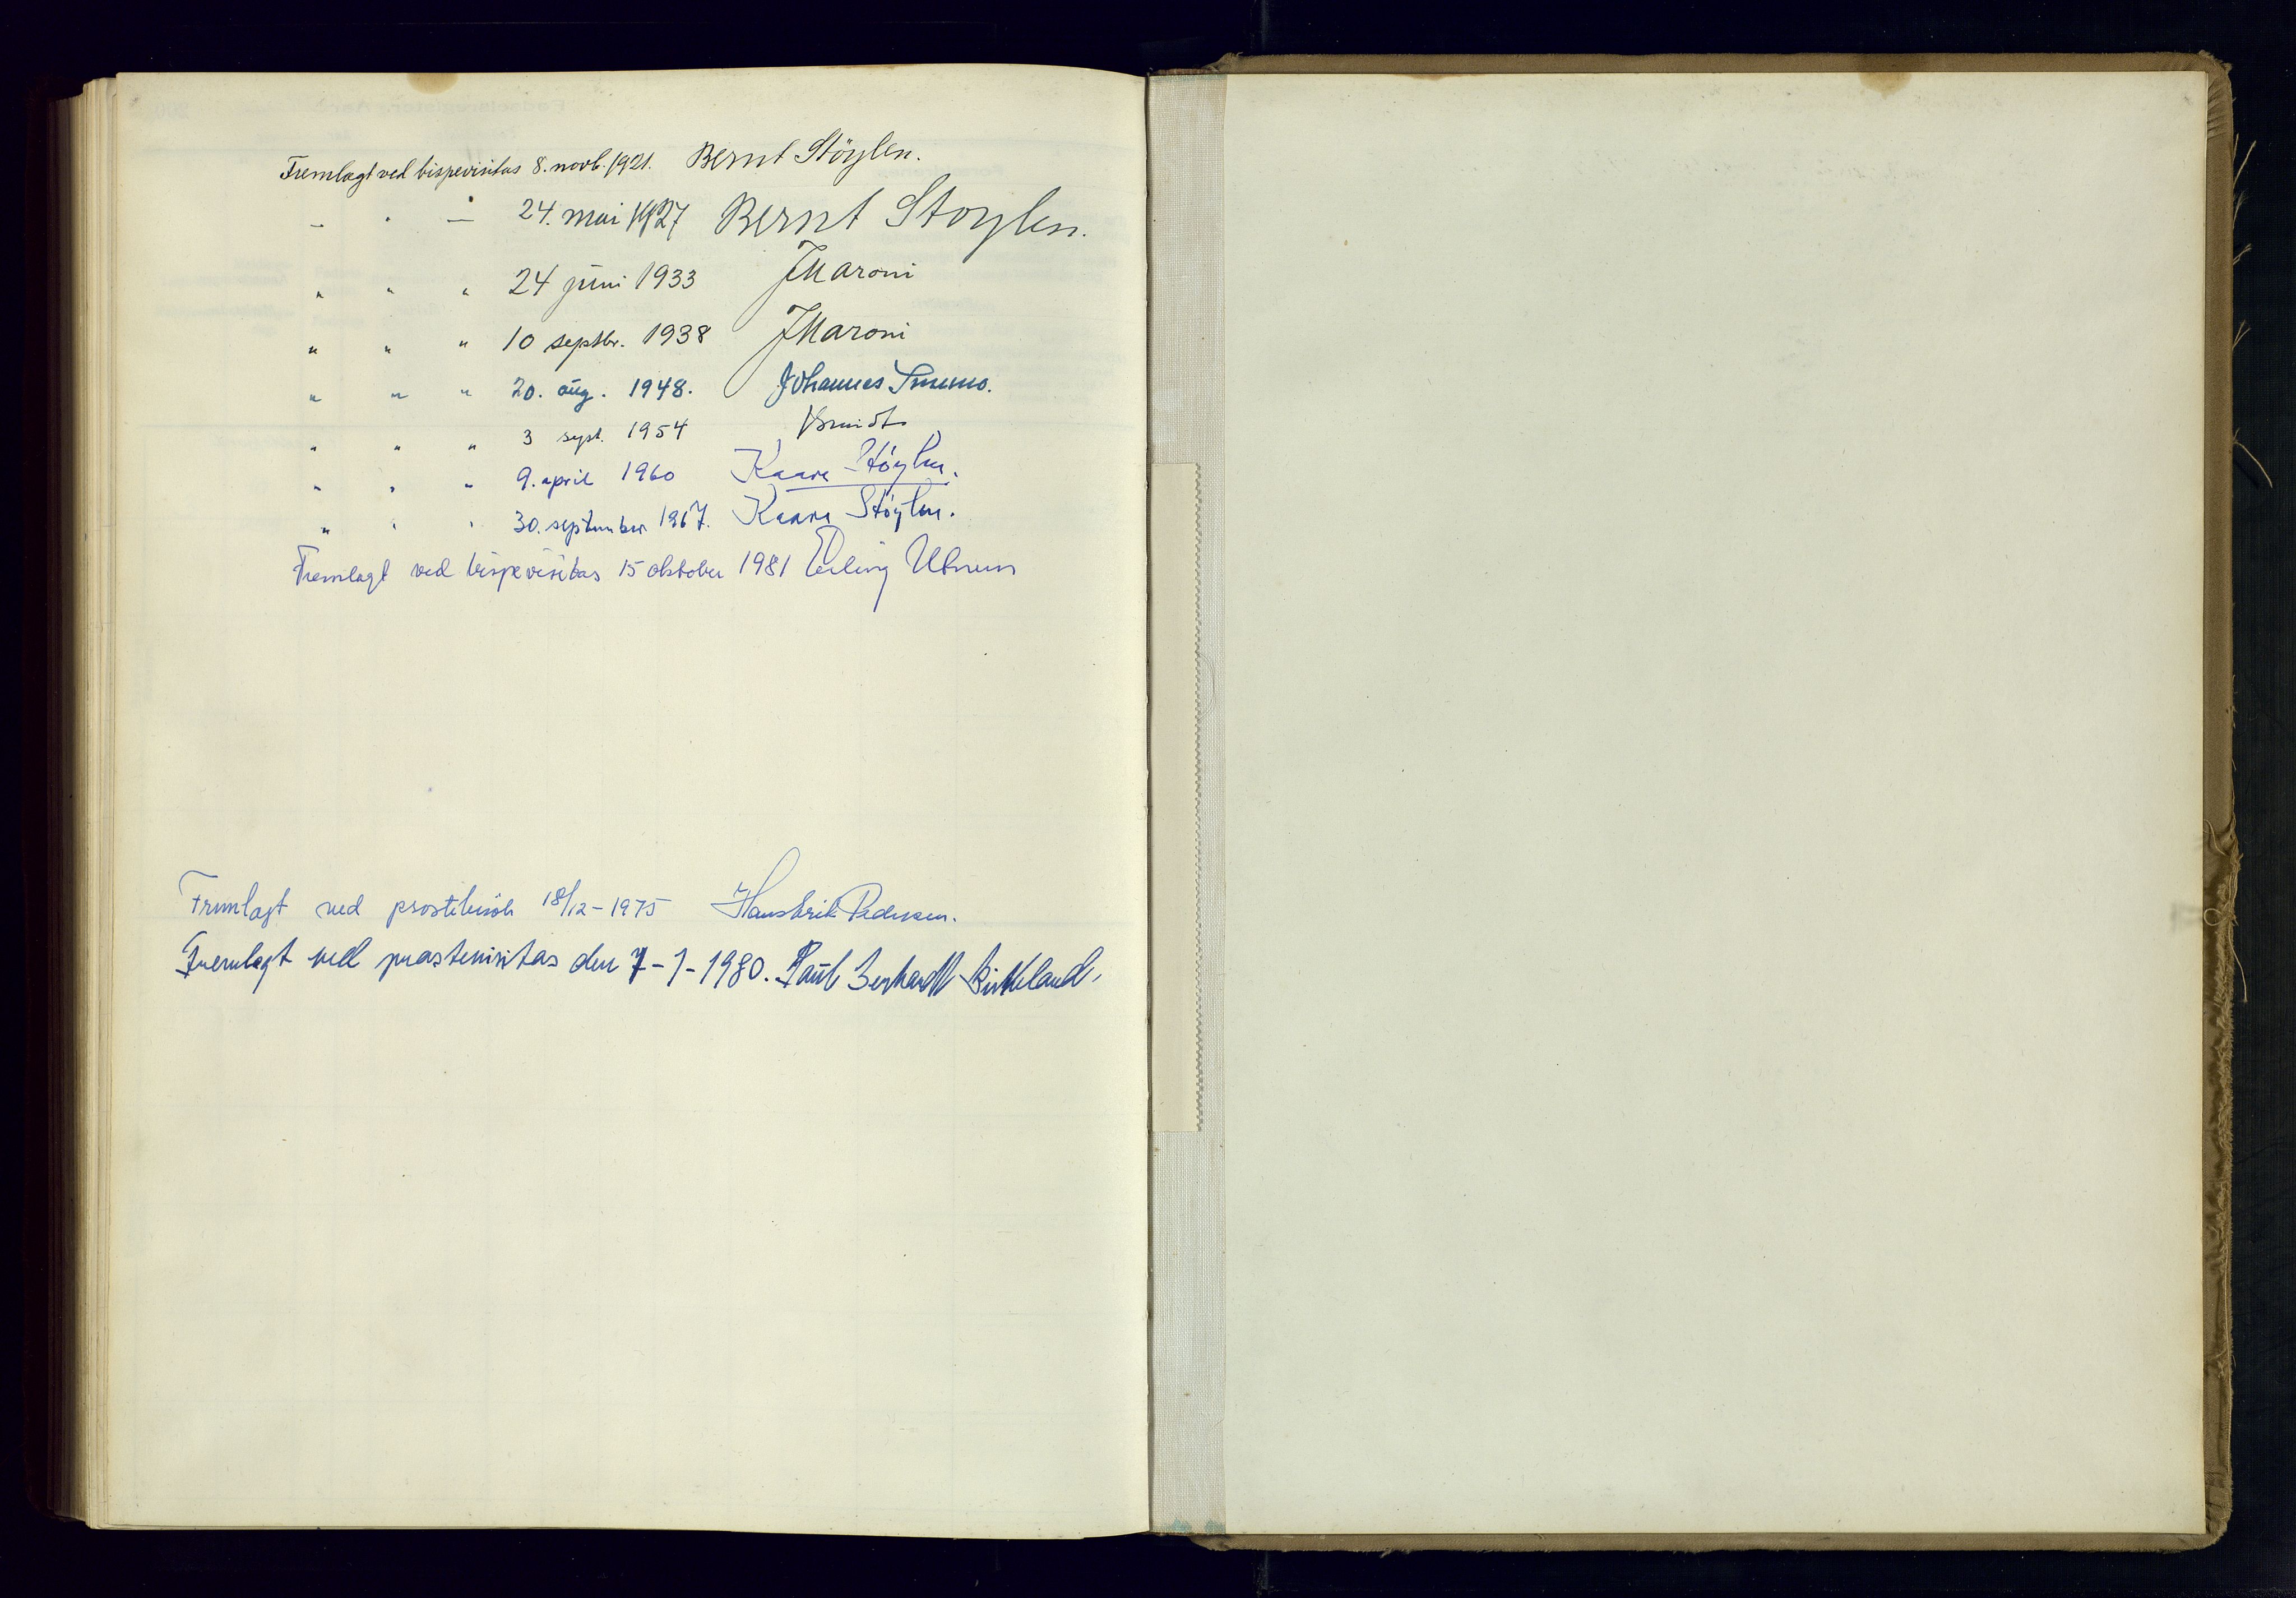 Fremlagt ved bispevisitas 8. novb. 1921. Bernt Støylen.
– " — 24. mai 1927 Bernt Støylen.
" " " 24 juni 1933 JMaroni
" " " 10 septbr. 1938 JMaroni
" " " 20. aug. 1948. Johannes Smemo.
" " " 3 sept. 1954
" " " 9. april 1960 Kaare Støylen.
" " " 30. september 1967. Kaare Støylen.
Fremlagt ved bispevisitas 15 oktober 1981 Erling Utnem
Fremlagt ved prostebesøk 18/12-1975 Hans Erik Pedersen.
Fremlagt ved prostevisitas den 7-1-1980. Paul Gerhardt Birkeland.